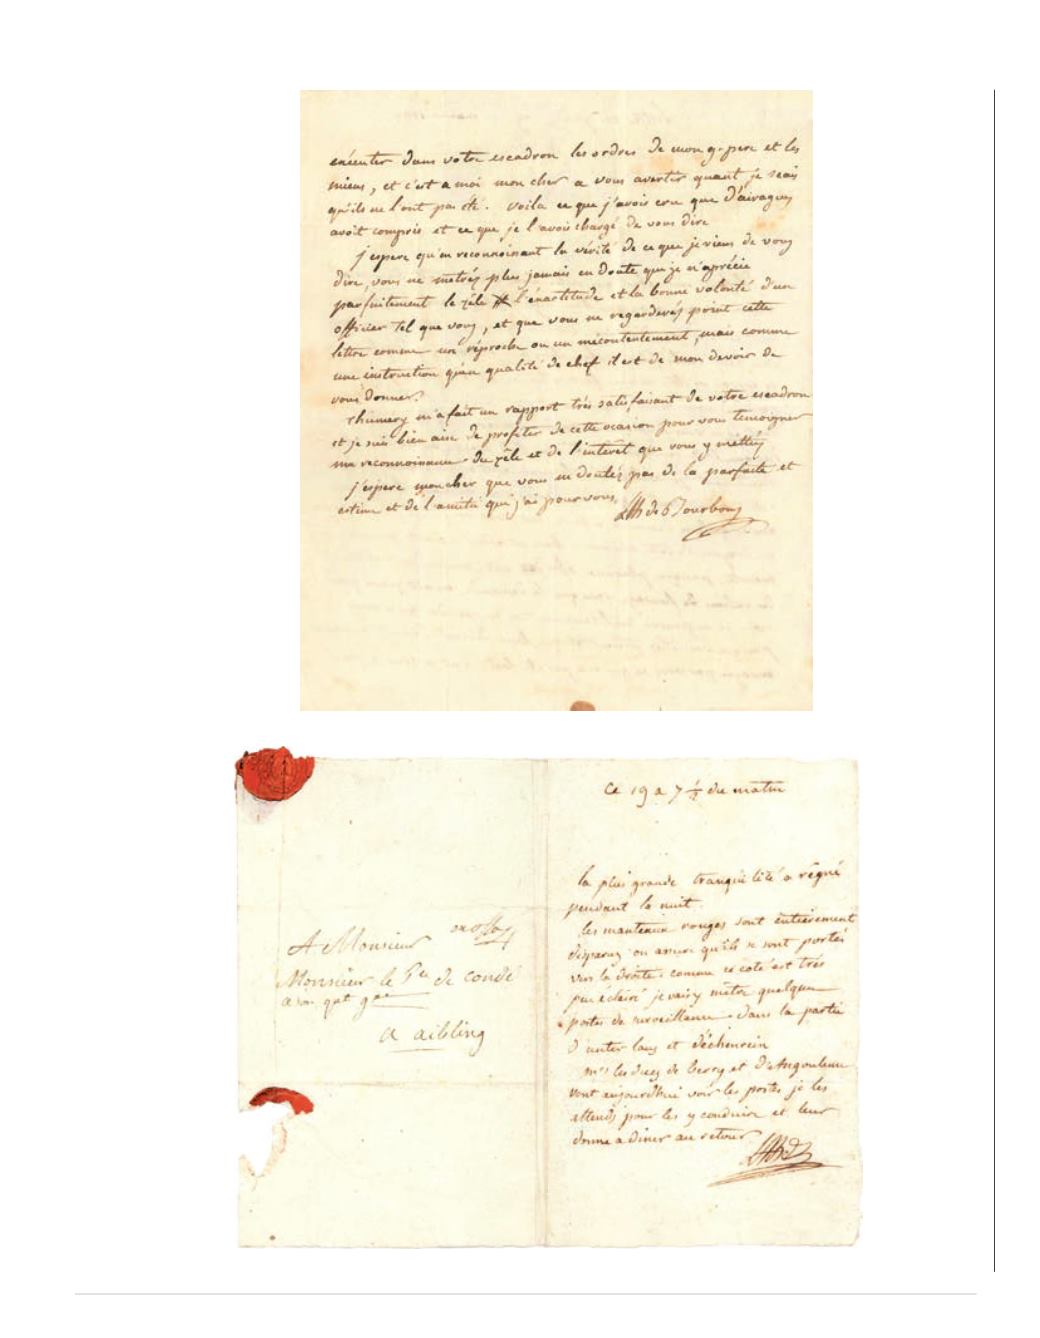 exécuter dans votre escadron les ordres de mon g-pere et les
miens, et c'est a moi mon cher a vous avertir quant je scais
qu'ils ne l'ont pas été. Voila ce que j'avois cru que d'airagues
avoit compris et ce que je l'avois chargé de vous dire
j'espere qu'en reconnoissant la vérité de ce que je viens de vous
dire, vous ne metrés plus jamais en doute que je n'aprécie
parfaitement le zêle l'éxactitude et la bonne volonté d'un
officier tel que vous, et que vous ne regarderés point cette
lettre comme un réproche ou un mécontentement, mais comme
une instruction qu'en qualité de chef il est de mon devoir de
vous donner.
thumery m'a fait un rapport trés satisfaisant de votre escadron
et je suis bien aise de profiter de cette ocasion pour vous temoigner
ma reconnoissance du zêle et de l'interet que vous y mettés
j'espere mon cher que vous ne doutés pas de la parfaite et
estime et de l'amitié que j'ai pour vous.
LAh de Bourbon
ce 19 a 7 ½ du matin
la plus grande tranquilité a régné
pendant la nuit.
les manteaux rouges sont entièrement
disparus on assure qu'ils se sont portés
vers la droite: comme ce coté est trés
peu éclairé je vais y metre quelques
postes de surveillance dans la partie
d'unter laus et
mrs les ducs de berry et d'Angouleme
vont aujourdhui voir les postes je les
attends pour les y conduire et leur
donne a diner au retour
A Monsieur
Monsieur le Pce de condé
a son qrt gal
a aibling